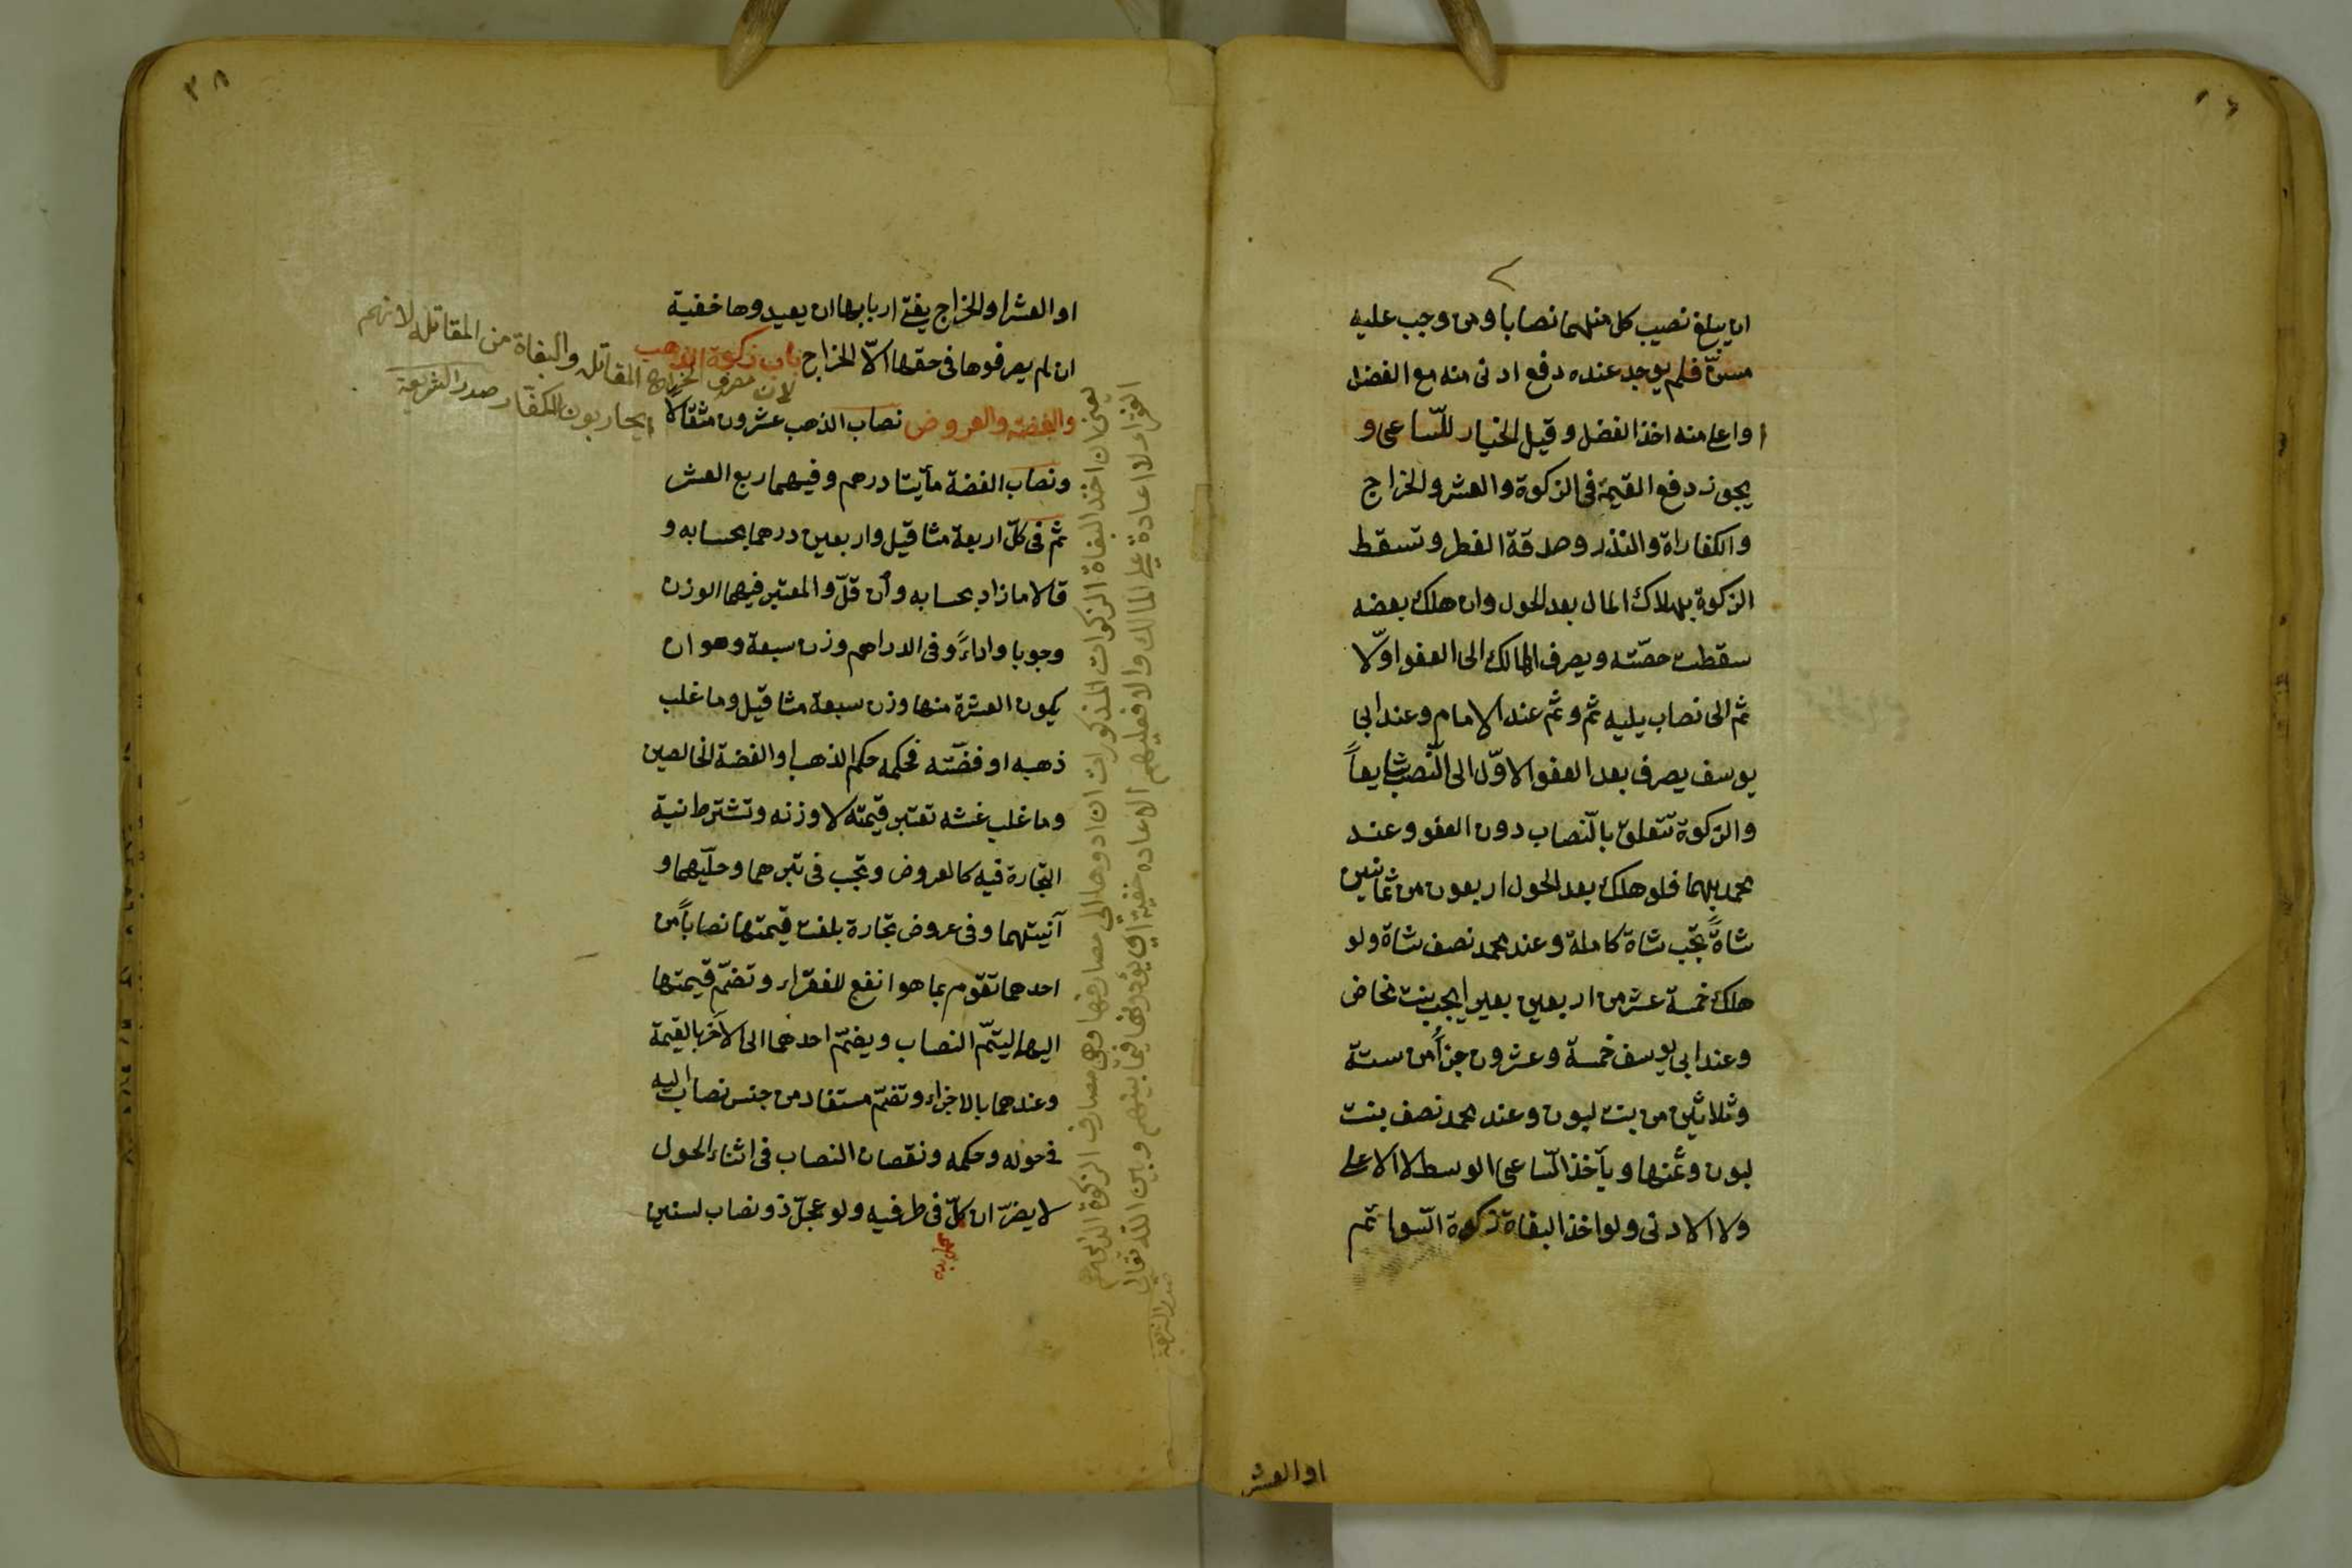 ان يبلغ نصيب كل منهما نصابا ومن وجب عليه
مسنّ فلم يوجد عنده دفع ادنى منه مع الفضل
او اعلى منه اخذ الفضل وقيل الخيار للسّاعى و
يجوز دفع القيمة فى الزكوة والعشر والخراج
والكفاراة والنذر وصدقة الفطر وتسقط
الزكوة بهلاك المال بعد الحول وان هلك بعضه
سقطت حصّته ويصرف الهالك الى العفو اوّلا
ثم الى نصاب يليه ثم وثم عند الامام وعند ابى
يوسف يصرف بعد العفو الاوّل الى النّصب شايعاً
والزكوة تتعلق بالنّصاب دون العفو وعند
محمد بهما فلو هلك بعد الحول اربعون من ثمانين
شاةً تجب شاة كاملة وعند محمد نصف شاة ولو
هلك خمسة عشر من اربعين بعيرا يجب بنت مخاض
وعند ابى يوسف خمسة وعشرون جزأً من ستة
وثلاثين من بنت لبون وعند محمد نصف بنت
لبون وثمنها ويأخذ السّاعى الوسط لا الاعلى
ولا الادنى ولو اخذ البغاة زكوة السّوائم
او العشر
٣٨
او العشر او الخراج يفتى اربابها ان يعيدوها خفية
ان لم يصرفوها فى حقها الّا الخراج باب زكوة الذهب
والفضة والعروض نصاب الذهب عشرون مثقالا
ونصاب الفضة مأيتا درهم وفيهما ربع العشر
ثم فى كلّ اربعة مثاقيل واربعين درهما بحسابه و
قالا ما زاد بحسابه وان قلّ والمعتبر فيهما الوزن
وجوبا واداءً وفى الدراهم وزن سبعة وهو ان
يكون العشرة منها وزن سبعة مثاقيل وما غلب
ذهبه او فضّته فحكمه حكم الذهب او الفضة الخالصين
وما غلب غشه تعتبر قيمته لا وزنه وتشترط نية
التجارة فيه كالعروض وتجب فى تبرهما وحليّهما و
آنيتهما وفى عروض تجارة بلغت قيمتها نصاباً من
احدهما تقوم بما هو انفع للفقراء وتضمّ قيمتها
اليهما ليتمّ النصاب ويضمّ احدهما الى الآخر بالقيمة
وعندهما بالاجزاء وتضمّ مستفاد من جنس نصاب اليه
فى حوله وحكمه ونقصان النصاب فى اثناء الحول
لا يضرّ ان كلّ فى طرفيه ولو عجلّ ذو نصاب لسنين
لان مصرف الخراج المقاتل والبغاة من المقاتلة لانهم
يحاربون الكفار صدر الشريعة
يعنى ان اخذ البغاة الزكوات المذكورات ان ادوها الى مصارفها وهى مصارف الزكوة
الفقراء لا اعادة على المالك والا فعليهم الاعادة خفية اى يؤدونها فيما بينهم وبين الله تعالى
صدر الشريعة